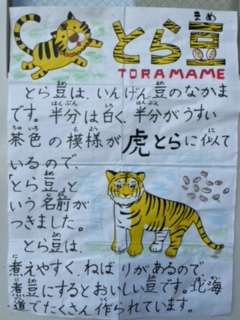 とら豆
まめ
TORAMAME
とら豆は、いんげん豆のなかま
です。半分は白く、半分がうすい
茶色の模様が虎とらに似て
いるので、
「とら豆」と
いう名前が
つきました。
とら豆は、
煮えやすく、ねばりがあるので、
煮豆にするとおいしい豆です。北海
道でたくさん作られています。